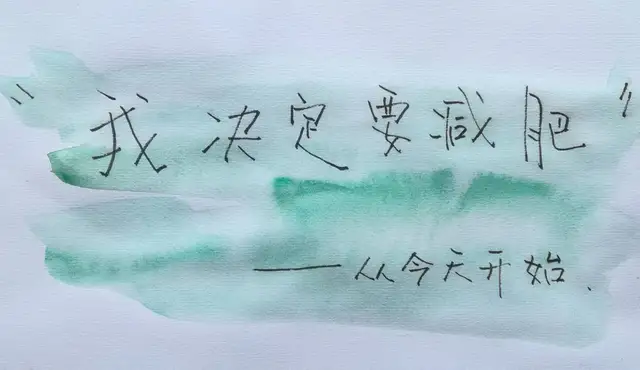 “我决定要减肥”
——从今天开始.